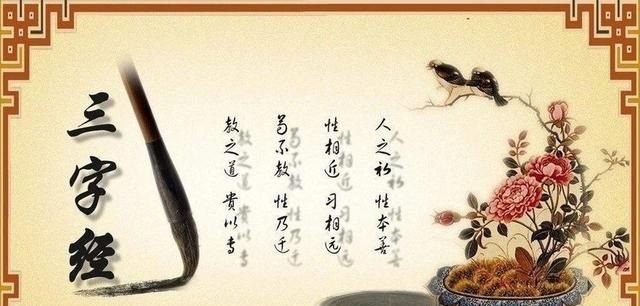 三字经
人之初 性本善
性相近 习相远
苟不教 性乃迁
教之道 贵以专